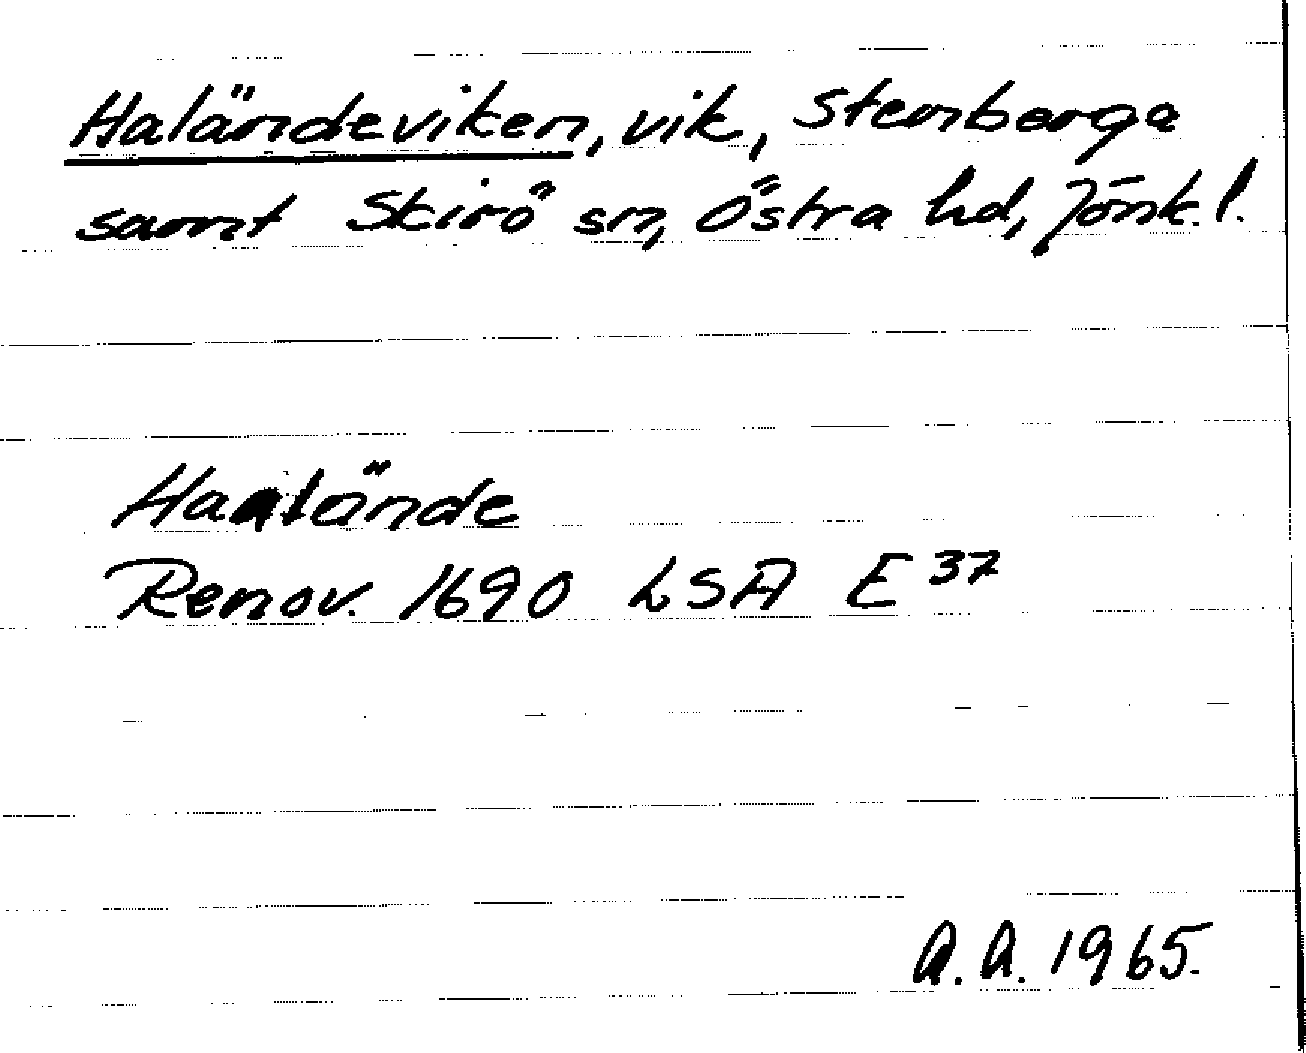 Haländeviken, vik, Stenberga
samt Skirö sn, Östra hd, Jönk. l.
Haalände
Renov. 1690 LSA E 37
A. A. 1965.